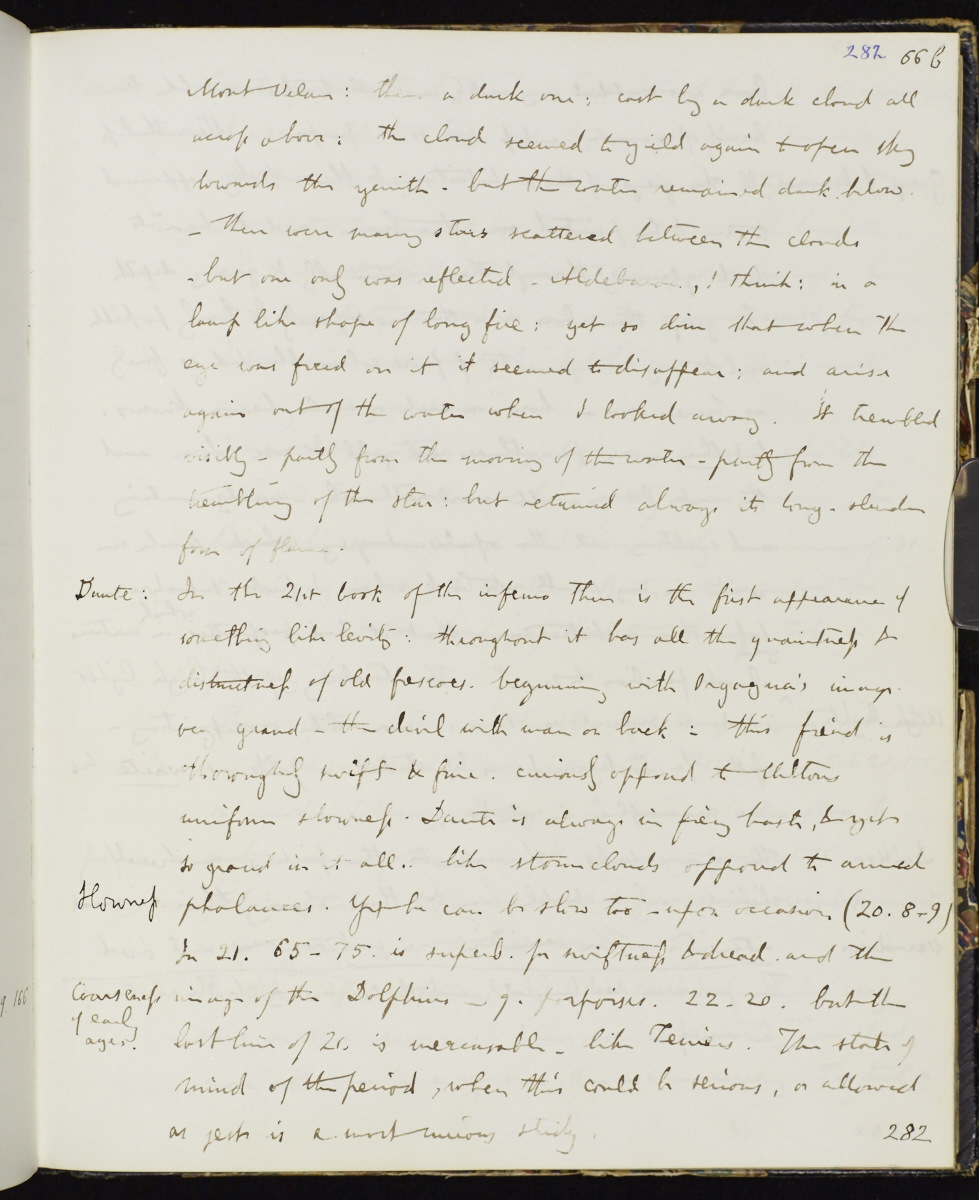 282 66 b
Mont Velan: then a dark one: cast by a dark cloud all
across above: the cloud seemed to yield again to open sky
towards the zenith - but the water remained dark below.
- There were many stars scattered between the clouds
- but one only was reflected - Aldebaran, I think: in a
lamp like shape of long fire: yet so dim that when the
eye was fixed on it it seemed to disappear; and arise
again out of the water when I looked away. It trembled
visibly - partly from the moving of the water - partly from the
trembling of the star: but retained always its long - slender
form of flame.
Dante: In the 21st book of the inferno there is the first appearance of
something like levity: throughout it has all the quaintness &
distinctness of old frescoes. beginning with Orgagna's image
very grand - the devil with man on back: this fiend is
thoroughly swift & fine. curiously opposed to Miltons
uniform slowness. Dante is always in fiery haste, & yet
so grand in it all.. like stormclouds opposed to armed
Slowness phalances. Yet he can be slow too - upon occasion (20. 8-9)
In 21. 65-75. is superb. for swiftness & dread. and the
q. 166
Coarseness of early ages. image of the Dolphins - q. porpoises. 22-20. but the
last line of 21. is inexcusable - like Teniers. The state of
mind of the period, when this could be serious, or allowed
as jest is a most curious study.
282